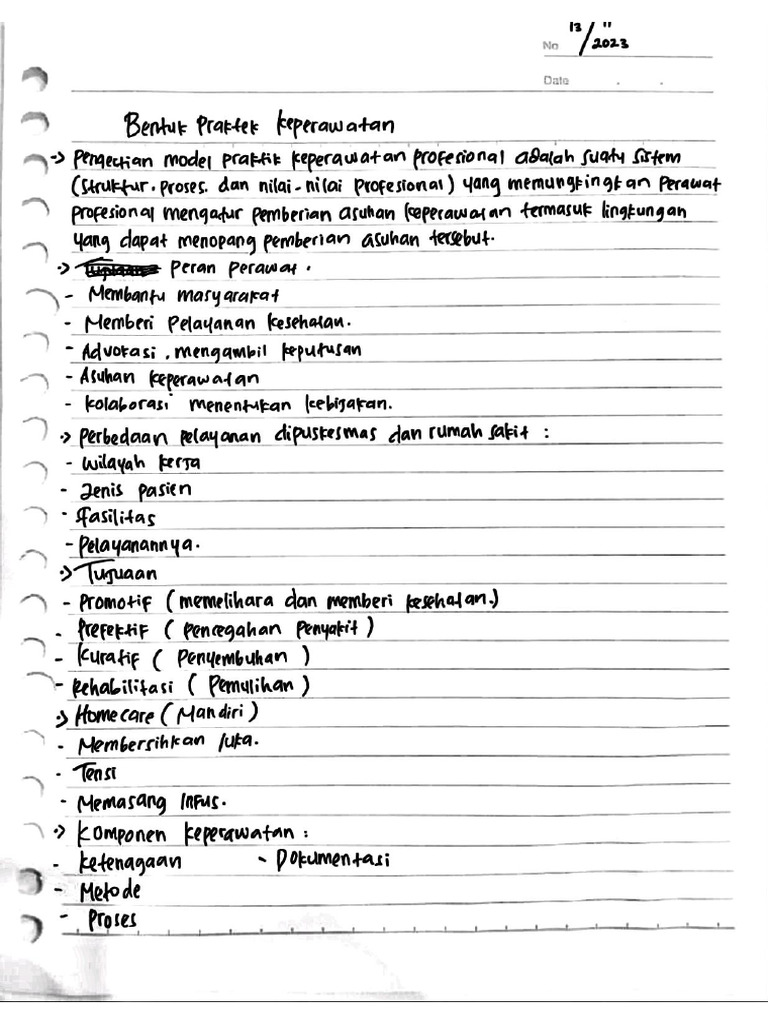 No 13/11 2023
Date . .
Bentuk Praktek Keperawatan
-> Pengertian model praktik keperawatan profesional adalah suatu sistem
(struktur. proses. dan nilai-nilai profesional) yang memungkingkan perawat
profesional mengatur pemberian asuhan keperawatan termasuk lingkungan
yang dapat menopang pemberian asuhan tersebut.
-> Peran perawat.
- Membantu masyarakat
- Memberi pelayanan kesehatan.
- Advokasi, mengambil keputusan
- Asuhan keperawatan
- kolaborasi menentukan kebijakan.
-> perbedaan pelayanan dipuskesmas dan rumah sakit :
- wilayah kerja
- Jenis pasien
- Fasilitas
- Pelayanannya.
-> Tujuaan
- promotif (memelihara dan memberi kesehatan.)
- Prefektif (pencegahan penyakit)
- kuratif (penyembuhan)
- Rehabilitasi (Pemulihan)
-> Homecare (Mandiri)
- Membersihkan luka.
- Tensi
- Memasang infus.
-> Komponen keperawatan :
- ketenagaan - Dokumentasi
- Metode
- Proses